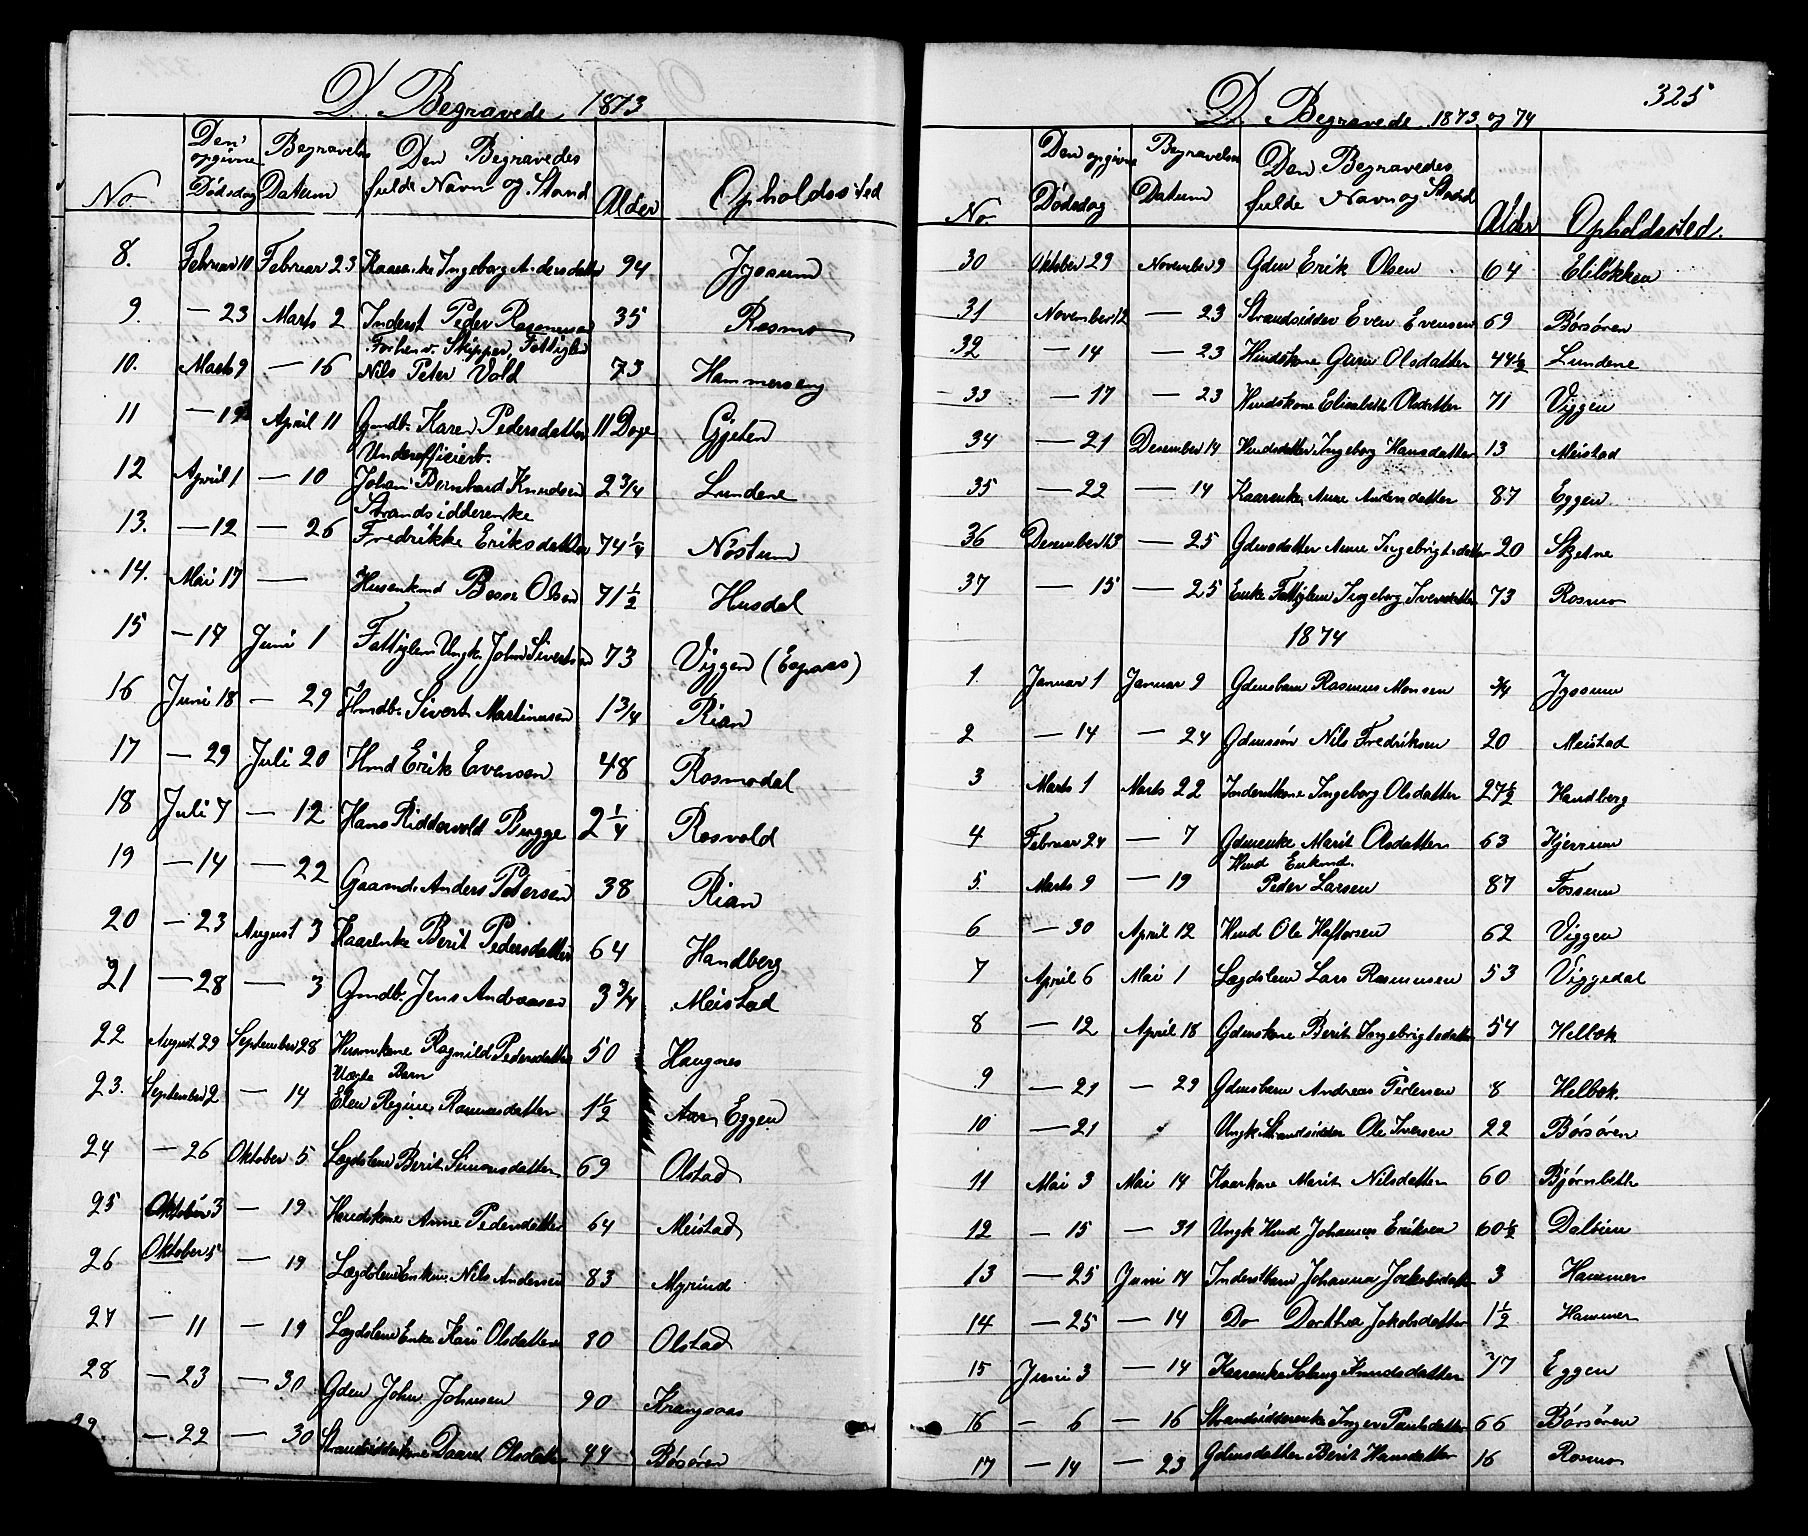 D. Begravede 1873
No
Den opgivne Dødsdag
Begravelses Datum
Den Begravedes fulde Navn og Stand
Alder
Opholdssted
8. Februar 10 Februar 23 Kaarenke Ingeborg Andersdatter 94 Jygsum
9. — 23 Marts 2 Inderst Peder Rasmussen 35 Rosmo
Forhenv. Skipper Fattiglem
10. Marts 9 — 16 Nils Peter Vold 73 Hammerseng
11 — 19 April 11 Gmdb. Karen Pedersdatter 11 Dage Gjeten
Underofficierb.
12 April 1 — 10 Johan Bernhard Knudsen 2 3/4 Lundene
Strandsidderenke
13. — 12 — 26 Fredrikke Eriksdatter 74 1/4 Nøstum
14. Mai 17 — Husenkmd Olsen 71 1/2 Husdal
15 — 17 Juni 1 Fattiglem Ungk. John Sivertsen 73 Viggen (Espaas)
16 Juni 18 — 29 Hmdb. Sivert Martinusen 1 3/4 Rian
17 — 29 Juli 20 Hmd Erik Evensen 48 Rosmodal
18 Juli 7 — 12 Hans Riddervold Bugge 2 1/4 Rosvold
19 — 14 — 22 Gaamd. Anders Petersen 38 Rian
20 — 23 August 3 Kaarenke Berit Pedersdatter 64 Handberg
21 — 28 — 3 Gmdb. Jens Andreasen 3 3/4 Meistad
22 August 29 September 28 Husmkone Ragnild Pedersdatter 50 Haugnes
Uægte Barn
23. September 2 — 14 Elen Regine Rasmusdatter 1 1/2 Eggen
24 — 26 Oktober 5 Lægdslem Berit Simonsdatter 69 Olstad
25 Oktober 3 — 19 Hmdskone Anne Pedersdatter 64 Meistad
26 Oktober 5 — 19 Lægdslem Enkem. Nils Andersen 83 Myrind
27 — 11 — 19 Lægdslem Enke Kari Olsdatter 80 Olstad
28 — 23 — 30 Gdm John Johnsen 90 Krangsaas
29 — 22 — 30 Strandsidderkone Olsdatter 44 Børsøren
325
D. Begravede 1873 og 74
No
Den opgivne Dødsdag
Begravelses Datum
Den Begravedes fulde Navn og Stand
Alder
Opholdssted.
30 Oktober 29 November 9 Gdm Erik Olsen 64 Eliløkken
31 November 12 — 23 Strandsidder Even Evensen 69 Børsøren
32 — 14 — 23 Hmdskone Guru Olsdatter 44 1/2 Lundene
33 — 17 — 23 Hmdskone Elisabeth Olsdatter 71 Viggen
34 — 21 Desember 14 Hmdsdatter Ingeborg Hansdatter 13 Meistad
35 — 22 — 14 Kaarenke Anne Andersdatter 87 Eggen
36 Desember 13 — 25 Gdmsdatter Anne Ingebrigtsdatter 20 Skjetne
37 — 15 — 25 Enke Fattiglem Ingeborg Iversdatter 73 Rosmo
1874
1. Januar 1 Januar 9 Gdmsbarn Rasmus Monsen 3/4 Jygsum
2 — 14 — 24 Gdmssøn Nils Fredriksen 20 Meistad
3 Marts 1 Marts 22 Inderstkone Ingeborg Olsdatter 27 1/2 Handberg
4 Februar 24 — 7 Gdmenke Marit Olsdatter 63 Hjerrum
Hmd Enkmd.
5. Marts 9 — 19 Peder Larsen 87 Fossum
6 — 30 April 12 Hmd Ole Haftorsen 62 Viggen
7 April 6 Mai 1 Lægdslem Lars Rasmussen 53 Viggedal
8 — 12 April 18 Gdmskone Berit Ingebrigtsdatter 54 Helbok
9 — 21 — 29 Gdmsbarn Andreas Pedersen 8 Helbok
10 — 21 " Ungk. Strandsidder Ole Iversen 22 Børsøren
11 Mai 3 Mai 14 Kaarkone Marit Nilsdatter 60 Bjørnbeth
12 — 15 — 31 Ungk Hmd Johannes Eriksen 60 1/2 Dalbuen
13 — 25 Juni 14 Inderstbarn Johanna Jakobsdatter 3 Hammer
14 — 25 — 14 Do Dorthea Jakobsdatter 1 1/2 Hammer
15 Juni 3 — 14 Kaarenke Solvug Knudsdatter 77 Eggen
16 — 6 — 16 Strandsidderenke Inger Paulsdatter 66 Børsøren
17 — 14 — 23 Gdmsdatter Berit Hansdatter 16 Rosmo